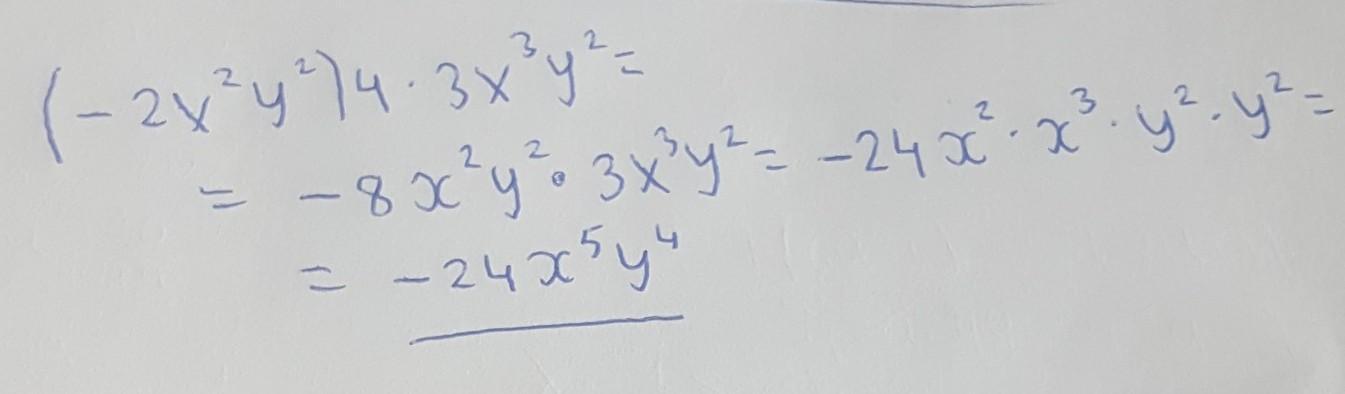 (-2x²y²)4·3x³y²=
= -8x²y²·3x³y²= -24x²·x³·y²·y²=
= -24x⁵y⁴